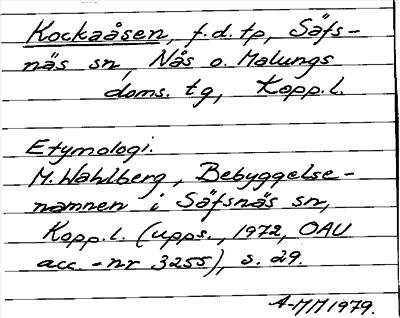 Kockaåsen, f.d. tp, Säfs-
näs sn, Nås o. Malungs
doms. tg, Kopp.l.
Etymologi.
M. Wahlberg, Bebyggelse-
namnen i Säfsnäs sn,
Kopp.l. (upps., 1972, OAU
acc.-nr 3255), s. 29.
A-MM 1979.